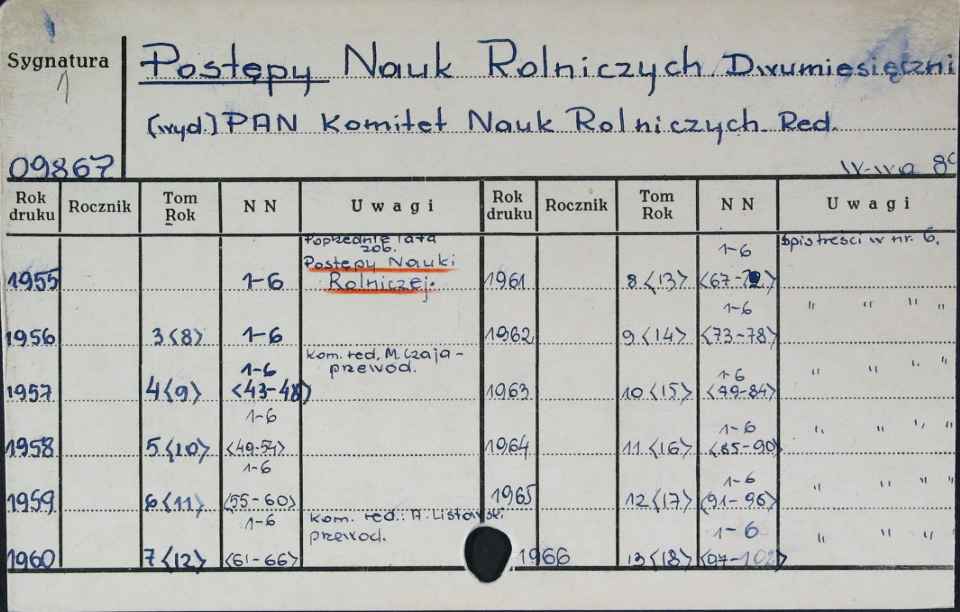 Sygnatura
Postępy Nauk Rolniczych Dwumiesięczni
(wyd.) PAN Komitet Nauk Rolniczych Red.
09867 W-wa 8°
Rok druku Rocznik Tom Rok NN Uwagi Rok druku Rocznik Tom Rok NN Uwagi
Poprzednie lata zob. 1-6 Spis treści w nr. 6.
1955 1-6 Postępy Nauki Rolniczej. 1961 8<13> <67-72>
1-6 " " " "
1956 3<8> 1-6 1962 9<14> <73-78>
1-6 Kom. red. M. Czaja - przewod. 1-6 " " " "
1957 4<9> <43-48> 1963 10<15> <79-84>
1-6 1-6 " " " "
1958 5<10> <49-54> 1964 11<16> <85-90>
1-6 1-6 " " " "
1959 6<11> <55-60> 1965 12<17> <91-96>
1-6 Kom. red.: A. Listowski przewod. 1-6 " " "
1960 7<12> <61-66> 1966 13<18> <97-102>